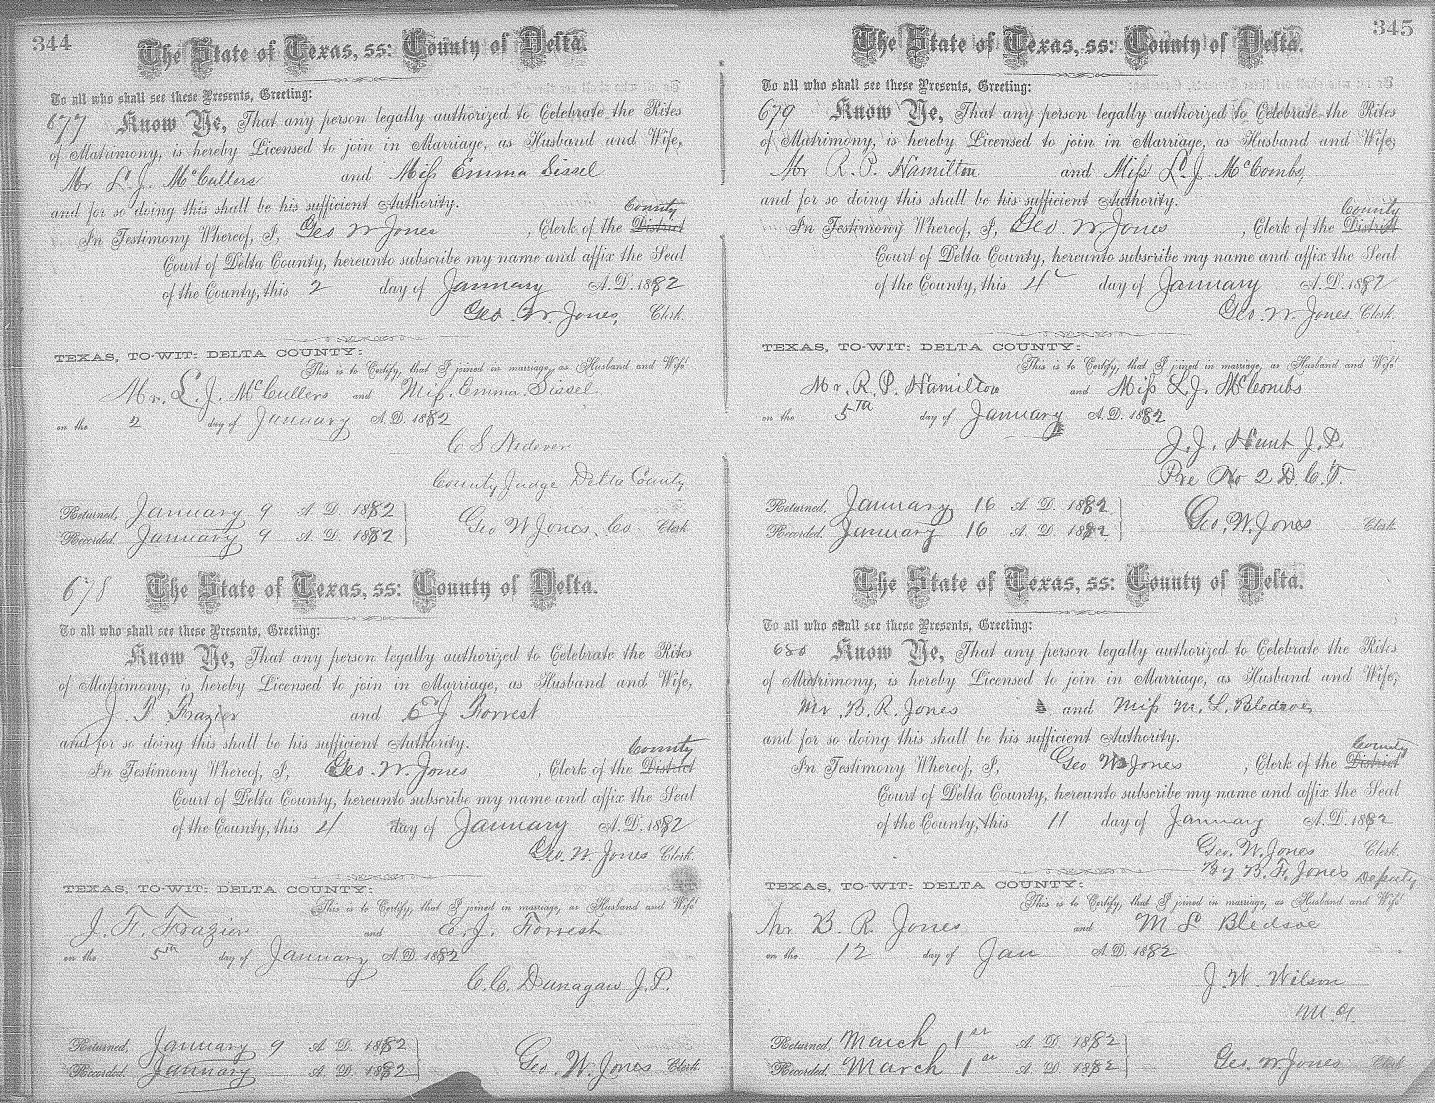 344
The State of Texas, ss: County of Delta.
To all who shall see these Presents, Greeting:
677 Know Ye, That any person legally authorized to Celebrate the Rites
of Matrimony, is hereby Licensed to join in Marriage, as Husband and Wife,
Mr L. J. McCullers and Miss Emma Sissel
and for so doing this shall be his sufficient Authority.
County
In Testimony Whereof, I, Geo W Jones, Clerk of the District
Court of Delta County, hereunto subscribe my name and affix the Seal
of the County, this 2 day of January A.D. 1882
Geo. W. Jones, Clerk.
TEXAS, TO-WIT: DELTA COUNTY:
This is to Certify, that I joined in marriage, as Husband and Wife
Mr. L. J. McCullers and Miss. Emma Sissel
on the 2 day of January A.D. 1882
C S Nedover
County Judge Delta County
Returned, January 9 A. D. 1882
Recorded, January 9 A. D. 1882
Geo W Jones, Co. Clerk
678 The State of Texas, ss: County of Delta.
To all who shall see these Presents, Greeting:
Know Ye, That any person legally authorized to Celebrate the Rites
of Matrimony, is hereby Licensed to join in Marriage, as Husband and Wife,
J. F Frazier and E J Forrest
and for so doing this shall be his sufficient Authority.
County
In Testimony Whereof, I, Geo. W. Jones, Clerk of the District
Court of Delta County, hereunto subscribe my name and affix the Seal
of the County, this 4 day of January A.D. 1882
Geo. W. Jones Clerk.
TEXAS, TO-WIT: DELTA COUNTY:
This is to Certify, that I joined in marriage, as Husband and Wife
J. F. Frazier and E. J. Forrest
on the 5th day of January A.D. 1882
C. C. Dunagan J. P.
Returned, January 9 A. D. 1882
Recorded, January A. D. 1882
Geo. W. Jones Clerk
345
The State of Texas, ss: County of Delta.
To all who shall see these Presents, Greeting:
679 Know Ye, That any person legally authorized to Celebrate the Rites
of Matrimony, is hereby Licensed to join in Marriage, as Husband and Wife,
Mr R. P. Hamilton and Miss L. J. McCombs,
and for so doing this shall be his sufficient Authority.
County
In Testimony Whereof, I, Geo W Jones, Clerk of the District
Court of Delta County, hereunto subscribe my name and affix the Seal
of the County, this 4 day of January A.D. 1882
Geo. W. Jones. Clerk.
TEXAS, TO-WIT: DELTA COUNTY:
This is to Certify, that I joined in marriage, as Husband and Wife
Mr. R. P. Hamilton and Miss L. J. McCombs
on the 5th day of January A.D. 1882
J. J. Hunt J. P.
Pre No 2 D. C. T.
Returned, January 16 A. D. 1882
Recorded, January 16 A. D. 1882
Geo. W. Jones Clerk
The State of Texas, ss: County of Delta.
To all who shall see these Presents, Greeting:
680 Know Ye, That any person legally authorized to Celebrate the Rites
of Matrimony, is hereby Licensed to join in Marriage, as Husband and Wife,
Mr. B. R. Jones and Miss M. L. Bledsoe,
and for so doing this shall be his sufficient Authority.
County
In Testimony Whereof, I, Geo W Jones, Clerk of the District
Court of Delta County, hereunto subscribe my name and affix the Seal
of the County, this 11 day of January A.D. 1882
Geo. W. Jones Clerk.
By B. F. Jones Deputy
TEXAS, TO-WIT: DELTA COUNTY:
This is to Certify, that I joined in marriage, as Husband and Wife
Mr B. R. Jones and M L Bledsoe
on the 12 day of Jan A.D. 1882
J. W. Wilson
M. G.
Returned, March 1st A. D. 1882
Recorded, March 1st A. D. 1882
Geo. W. Jones Clerk